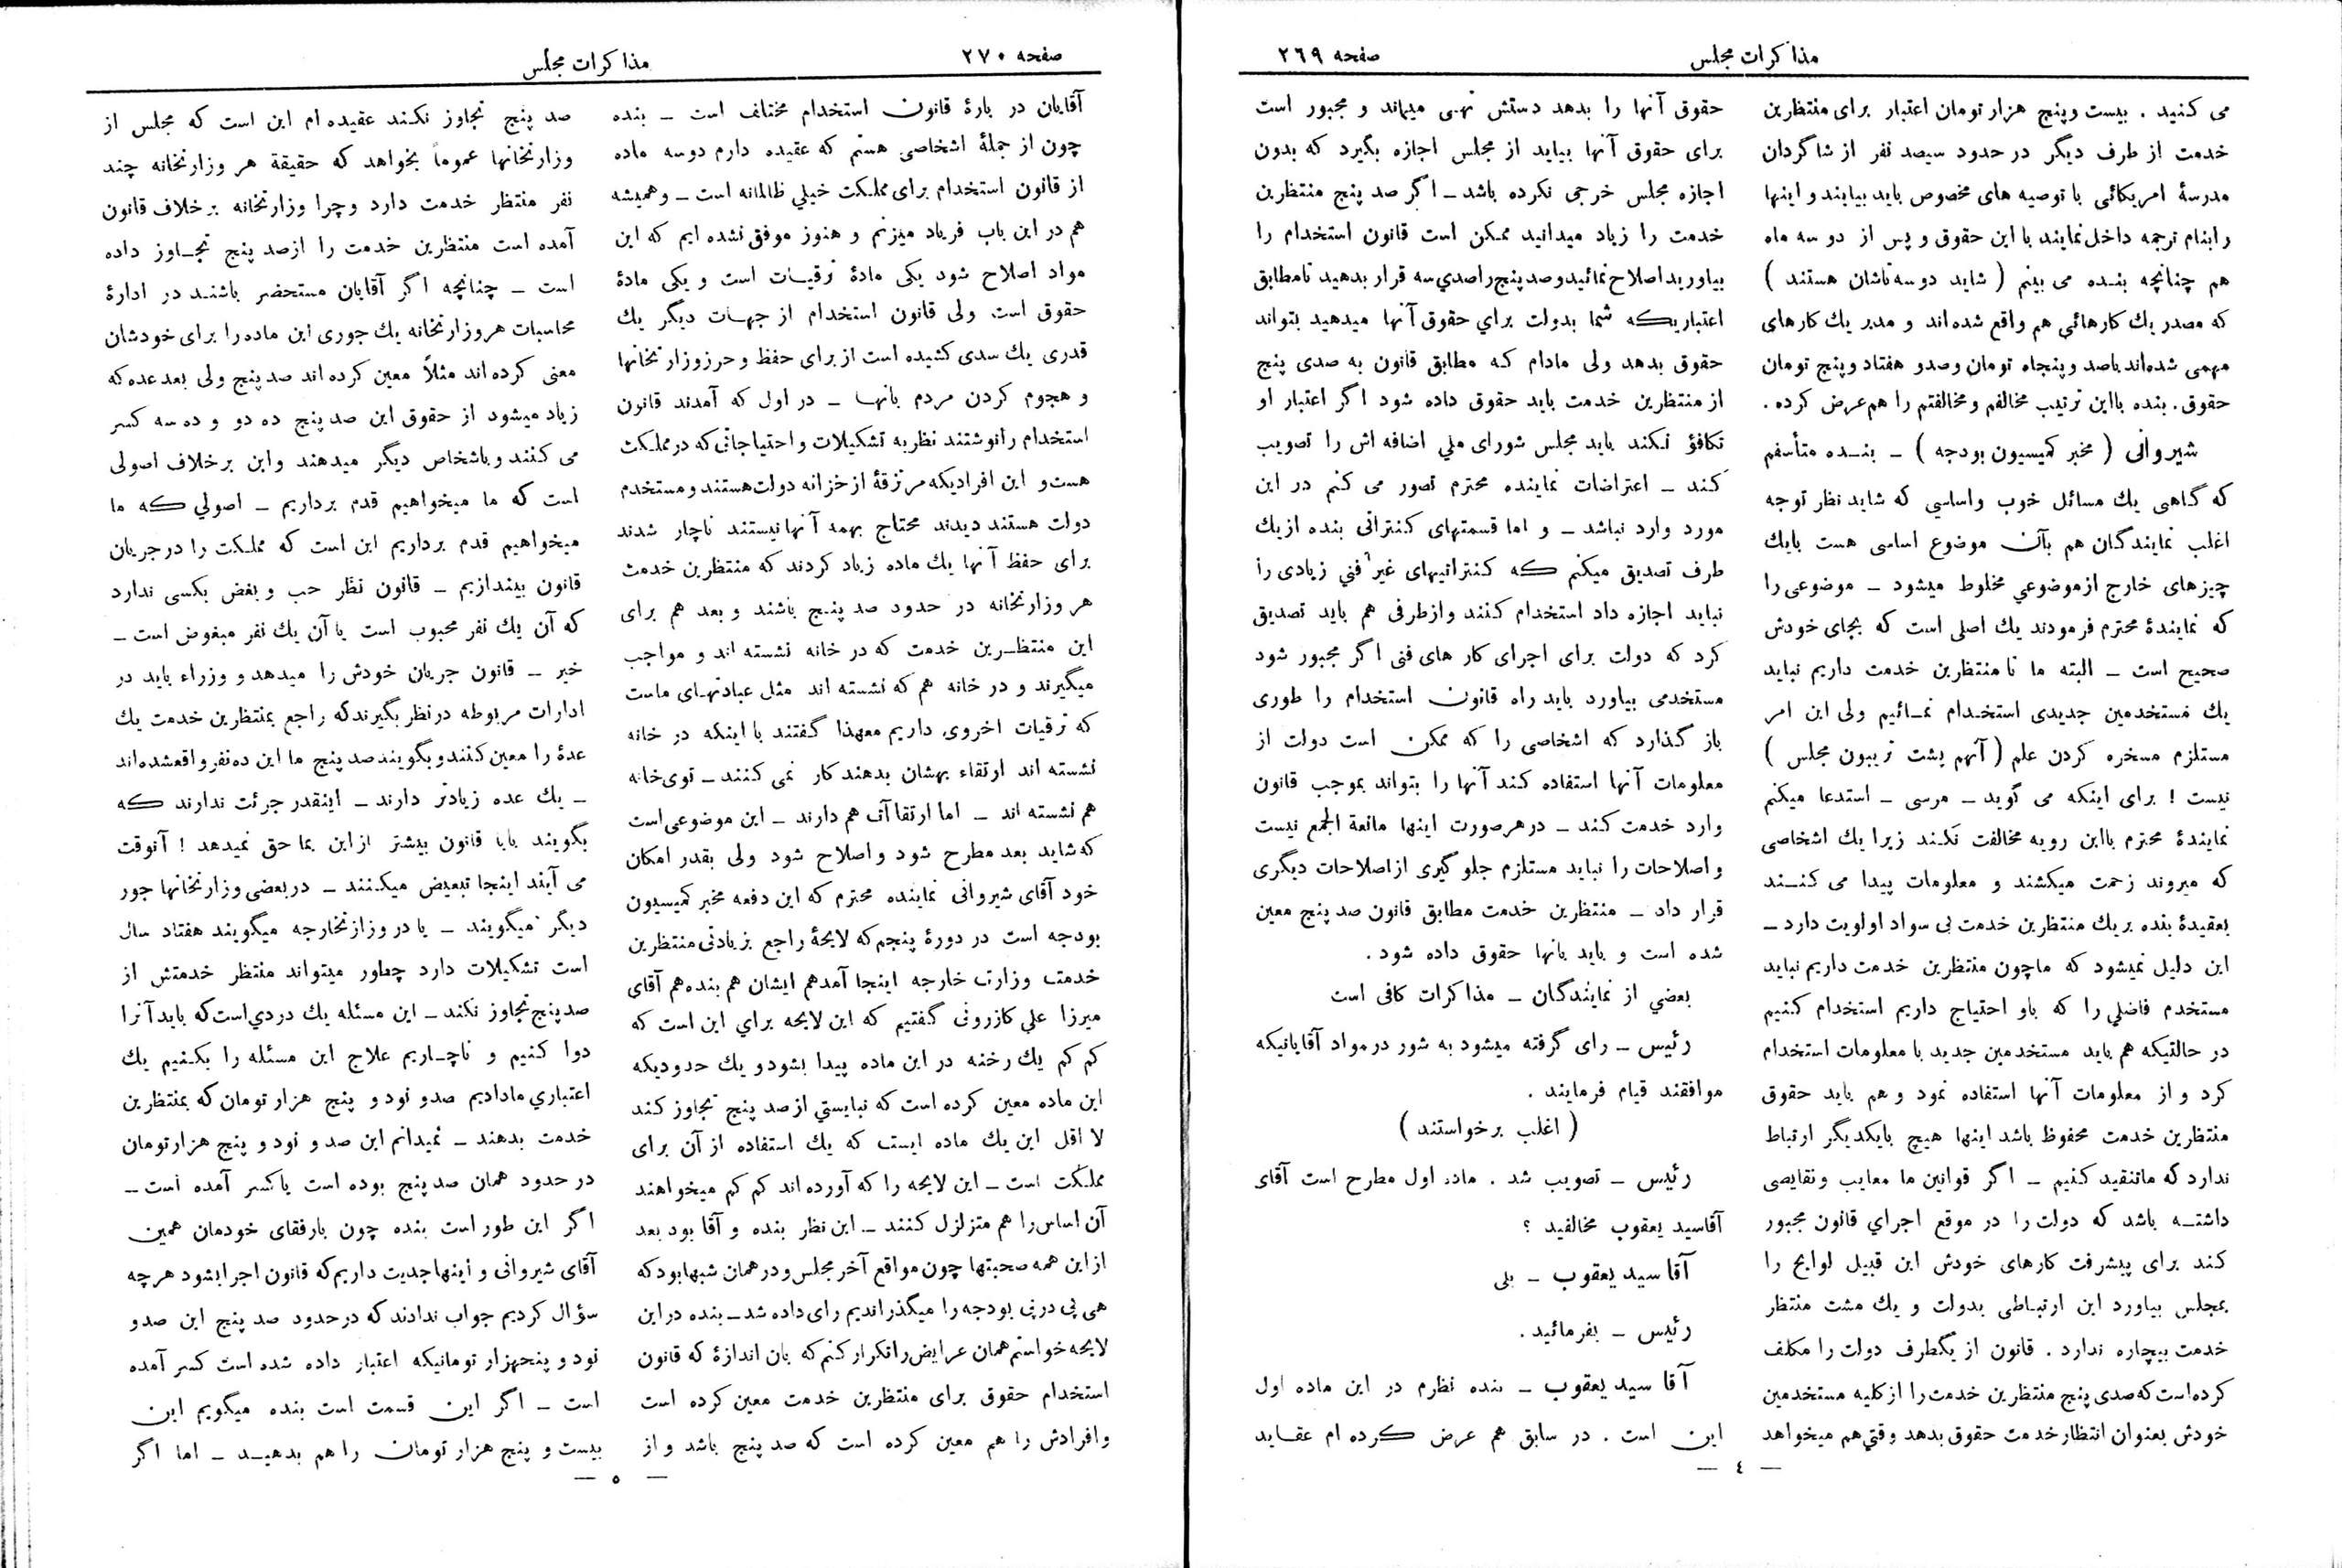 مذاکرات مجلس
صفحه ۲۶۹
می کنید . بیست وپنج هزار تومان اعتبار برای منتظرین
خدمت از طرف دیگر در حدود سیصد نفر از شاگردان
مدرسهٔ امریکائی با توصیه های مخصوص باید بیایند و اینها
را بنام ترجمه داخل نمایند با این حقوق و پس از دو سه ماه
هم چنانچه بنده می بینم ( شاید دو سه تاشان هستند )
که مصدر یك کارهائی هم واقع شده اند و مدیر یك کارهای
مهمی شده اند باصد و پنجاه تومان وصدو هفتاد و پنج تومان
حقوق . بنده بااین ترتیب مخالفم و مخالفتم را هم عرض کرده .
شیروانی ( مخبر کمیسیون بودجه ) ـ بنده متأسفم
که گاهی یك مسائل خوب واساسی که شاید نظر توجه
اغلب نمایندگان هم بآن موضوع اساسی هست بایك
چیزهای خارج ازموضوعي مخلوط میشود ـ موضوعی را
که نمایندهٔ محترم فرمودند یك اصلی است که بجای خودش
صحیح است ـ البته ما تا منتظرین خدمت داریم نباید
یك مستخدمین جدیدی استخدام نمائیم ولی این امر
مستلزم مسخره کردن علم ( آنهم پشت تریبون مجلس )
نیست ! برای اینکه می گوید ـ مرسی ـ استدعا میکنم
نمایندهٔ محترم بااین رویه مخالفت نکنند زیرا یك اشخاصی
که میروند زحمت میکشند و معلومات پیدا می کنند
بعقیدهٔ بنده بر یك منتظرین خدمت بی سواد اولویت دارد ـ
این دلیل نمیشود که ماچون منتظرین خدمت داریم نباید
مستخدم فاضلي را که باو احتیاج داریم استخدام کنیم
در حالتیکه هم باید مستخدمین جدید با معلومات استخدام
کرد و از معلومات آنها استفاده نمود و هم باید حقوق
منتظرین خدمت محفوظ باشد اینها هیچ بایکدیگر ارتباط
ندارد که ماتنقید کنیم ـ اگر قوانین ما معایب ونقایصی
داشته باشد که دولت را در موقع اجراي قانون مجبور
کند برای پیشرفت کارهای خودش این قبیل لوایح را
بمجلس بیاورد این ارتباطی بدولت و یك مشت منتظر
خدمت بیچاره ندارد . قانون از یکطرف دولت را مکلف
کرده است که صدی پنج منتظرین خدمت را از کلیه مستخدمین
خودش بعنوان انتظار خدمت حقوق بدهد وقتي هم میخواهد
حقوق آنها را بدهد دستش تهی میماند و مجبور است
برای حقوق آنها بیاید از مجلس اجازه بگیرد که بدون
اجازه مجلس خرجی نکرده باشد ـ اگر صد پنج منتظرین
خدمت را زیاد میدانید ممکن است قانون استخدام را
بیاورید اصلاح نمائید وصد پنج را صدي سه قرار بدهید تا مطابق
اعتباریکه شما بدولت براي حقوق آنها میدهید بتواند
حقوق بدهد ولی مادام که مطابق قانون به صدی پنج
از منتظرین خدمت باید حقوق داده شود اگر اعتبار او
تکافؤ نکند باید مجلس شورای ملي اضافه اش را تصویب
کند ـ اعتراضات نماینده محترم تصور می کنم در این
مورد وارد نباشد ـ و اما قسمتهای کنتراتی بنده از یك
طرف تصدیق میکنم که کنتراتیهای غیر فني زیادی را
نباید اجازه داد استخدام کنند وازطرفی هم باید تصدیق
کرد که دولت برای اجرای کار های فنی اگر مجبور شود
مستخدمی بیاورد باید راه قانون استخدام را طوری
باز گذارد که اشخاصی را که ممکن است دولت از
معلومات آنها استفاده کند آنها را بتواند بموجب قانون
وارد خدمت کند ـ در هر صورت اینها مانعة الجمع نیست
و اصلاحات را نباید مستلزم جلو گیری از اصلاحات دیگری
قرار داد ـ منتظرین خدمت مطابق قانون صد پنج معین
شده است و باید بانها حقوق داده شود .
بعضي از نمایندگان ـ مذاکرات کافی است
رئیس ـ رای گرفته میشود به شور در مواد آقایانیکه
موافقند قیام فرمایند .
( اغلب برخواستند )
رئیس ـ تصویب شد . ماده اول مطرح است آقای
آقاسید یعقوب مخالفید ؟
آقا سید یعقوب ـ بلی
رئیس ـ بفرمائید .
آقا سید یعقوب ـ بنده نظرم در این ماده اول
این است . در سابق هم عرض کرده ام عقاید
— ٤ —
صفحه ۲۷۰
مذاکرات مجلس
آقایان در بارهٔ قانون استخدام مختلف است ـ بنده
چون از جملهٔ اشخاصی هستم که عقیده دارم دو سه ماده
از قانون استخدام برای مملکت خیلي ظالمانه است ـ و همیشه
هم در این باب فریاد میزنم و هنوز موفق نشده ایم که این
مواد اصلاح شود یکی مادهٔ ترقیات است و یکی مادهٔ
حقوق است ولی قانون استخدام از جهات دیگر یك
قدری یك سدی کشیده است از برای حفظ و حرز وزارتخانها
و هجوم کردن مردم بانها ـ در اول که آمدند قانون
استخدام رانوشتند نظر به تشکیلات و احتیاجاتی که در مملکت
هست و این افرادیکه مرتزقهٔ از خزانه دولت هستند و مستخدم
دولت هستند دیدند محتاج بهمه آنها نیستند ناچار شدند
برای حفظ آنها یك ماده زیاد کردند که منتظرین خدمت
هر وزارتخانه در حدود صد پنج باشند و بعد هم برای
این منتظرین خدمت که در خانه نشسته اند و مواجب
میگیرند و در خانه هم که نشسته اند مثل عبادتهای ماست
که ترقیات اخروی داریم معهذا گفتند با اینکه در خانه
نشسته اند ارتقاء بهشان بدهند کار نمی کنند ـ توی خانه
هم نشسته اند ـ اما ارتقاآت هم دارند ـ این موضوعی است
که شاید بعد مطرح شود و اصلاح شود ولی بقدر امکان
خود آقای شیروانی نماینده محترم که این دفعه مخبر کمیسیون
بودجه است در دورهٔ پنجم که لایحهٔ راجع بزیادتی منتظرین
خدمت وزارت خارجه اینجا آمدهم ایشان هم بنده هم آقای
میرزا علي کازرونی گفتیم که این لایحه براي این است که
کم کم یك رخنه در این ماده پیدا بشود و یك حدودیکه
این ماده معین کرده است که نبایستي از صد پنج تجاوز کند
لا اقل این یك ماده ایست که یك استفاده از آن برای
مملکت است ـ این لایحه را که آورده اند کم کم میخواهند
آن اساس را هم متزلزل کنند ـ این نظر بنده و آقا بود بعد
از این همه صحبتها چون مواقع آخر مجلس و در همان شبها بود که
هی پی در پی بودجه را میگذراندیم رای داده شد ـ بنده در این
لایحه خواستم همان عرایض را تکرار کنم که بان اندازهٔ که قانون
استخدام حقوق برای منتظرین خدمت معین کرده است
وافرادش را هم معین کرده است که صد پنج باشد و از
صد پنج تجاوز نکند عقیده ام این است که مجلس از
وزارتخانها عموماً بخواهد که حقیقة هر وزارتخانه چند
نفر منتظر خدمت دارد و چرا وزارتخانه برخلاف قانون
آمده است منتظرین خدمت را ازصد پنج تجاوز داده
است ـ چنانچه اگر آقایان مستحضر باشند در ادارهٔ
محاسبات هر وزارتخانه یك جوری این ماده را برای خودشان
معنی کرده اند مثلاً معین کرده اند صد پنج ولی بعد عده که
زیاد میشود از حقوق این صد پنج ده دو و ده سه کسر
می کنند و باشخاص دیگر میدهند واین برخلاف اصولی
است که ما میخواهیم قدم برداریم ـ اصولي که ما
میخواهیم قدم برداریم این است که مملکت را در جریان
قانون بیندازیم ـ قانون نظر حب و بغض بکسی ندارد
که آن یك نفر محبوب است یا آن یك نفر مبغوض است ـ
خیر ـ قانون جریان خودش را میدهد و وزراء باید در
ادارات مربوطه در نظر بگیرند که راجع بمنتظرین خدمت یك
عدهٔ را معین کنند و بگویند صد پنج ما این ده نفر واقعشده اند
ـ یك عده زیادتر دارند ـ اینقدر جرئت ندارند که
بگویند بابا قانون بیشتر ازاین بما حق نمیدهد ! آنوقت
می آیند اینجا تبعیض میکنند ـ در بعضی وزارتخانها جور
دیگر میگویند ـ یا در وزارتخارجه میگویند هفتاد سال
است تشکیلات دارد چطور میتواند منتظر خدمتش از
صد پنج تجاوز نکند ـ این مسئله یك دردي است که باید آنرا
دوا کنیم و ناچاریم علاج این مسئله را بکنیم یك
اعتباري مادادیم صدو نود و پنج هزار تومان که بمنتظرین
خدمت بدهند ـ نمیدانم این صد و نود و پنج هزار تومان
در حدود همان صد پنج بوده است یا کسر آمده است ـ
اگر این طور است بنده چون بارفقای خودمان همین
آقای شیروانی و اینها جدیت داریم که قانون اجرا بشود هرچه
سؤال کردیم جواب ندادند که در حدود صد پنج این صدو
نود و پنجهزار تومانیکه اعتبار داده شده است کسر آمده
است ـ اگر این قسمت است بنده میگویم این
بیست و پنج هزار تومان را هم بدهید ـ اما اگر
— ٥ —